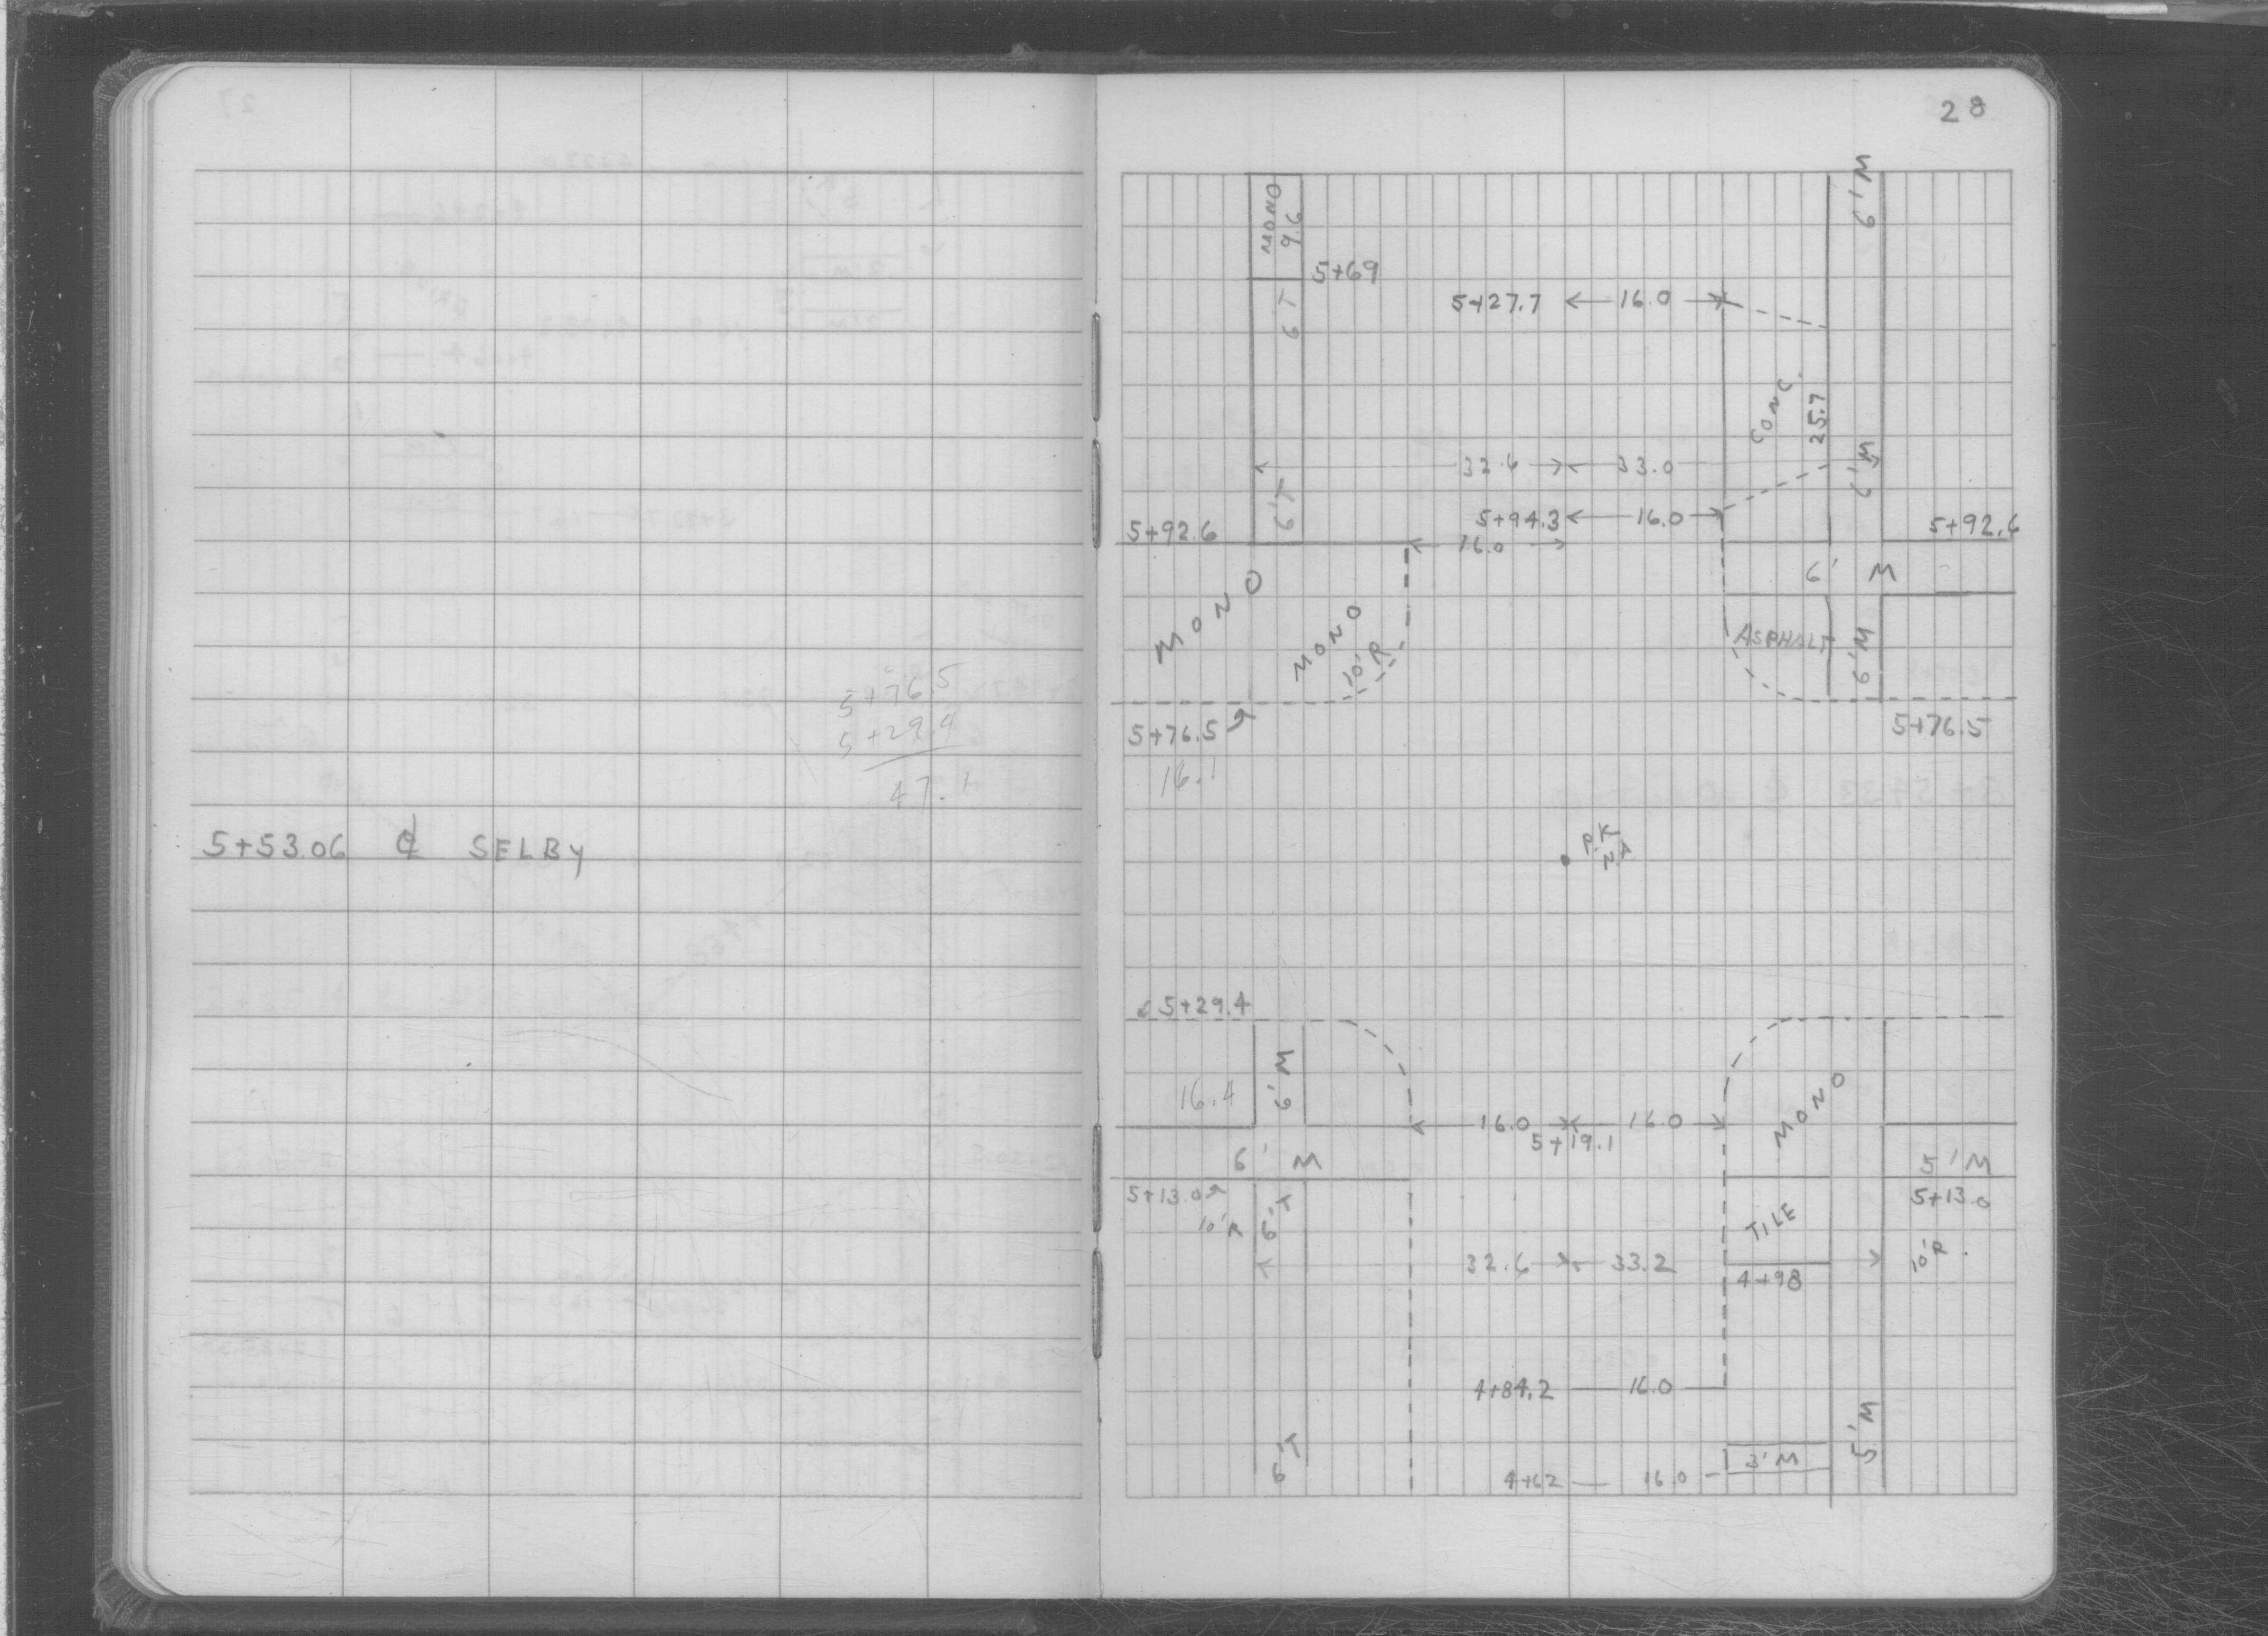 5+76.5
5+29.4
47.1
5+53.06 ℄ SELBY
28
MONO
9.6
6'M
5+69
6'T
5+27.7 ← 16.0 →
CONC.
25.7
32.6 33.0
6'M
6'T
5+94.3 ← 16.0 →
5+92.6
16.0
5+92.6
6' M
MONO
MONO
10'R
ASPHALT
6'M
5+76.5
5+76.5
16.1
P.K
5+29.4
6'M
16.4
MONO
16.0 16.0
5+19.1
6' M
5'M
5+13.0
5+13.0
10'R
6'T
TILE
10'R.
32.6 33.2
4+98
4+84.2 — 16.0
5'M
6'T
3'M
4+62 — 16.0